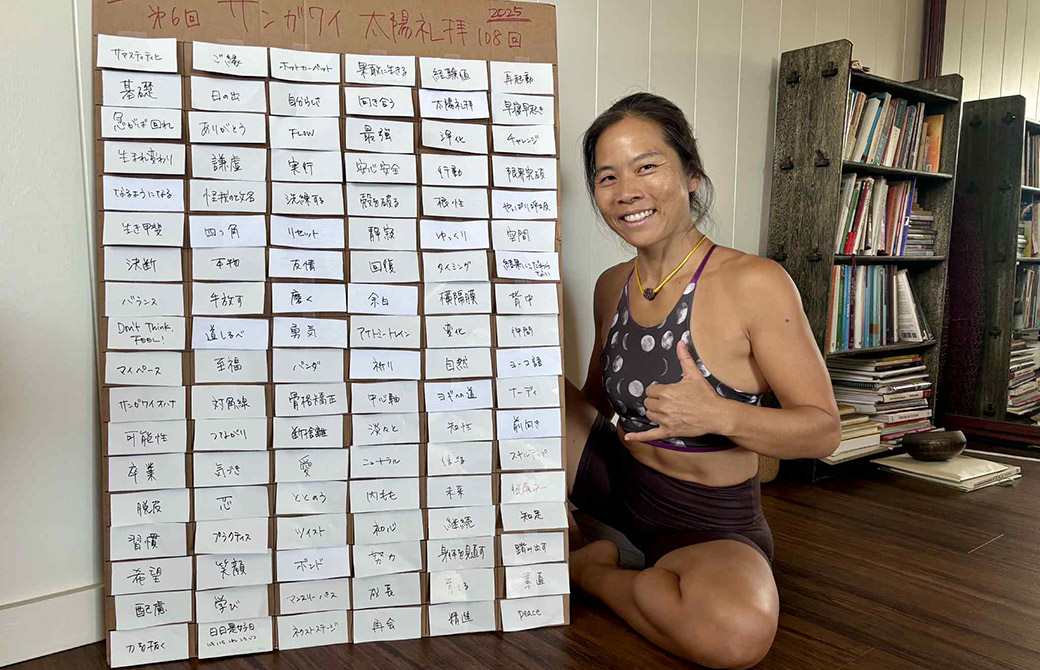 第6回 サンガワイ 太陽礼拝 108回 2025
サマスティティヒ
ご縁
ホットカーペット
果敢に生きる
経験値
再起動
基礎
日の出
自分らしさ
向き合う
太陽礼拝
早寝早起き
急がば回れ
ありがとう
FLOW
最強
浄化
チャレンジ
生まれ変わり
謙虚
実行
安心安全
行動
限界突破
なるようになる
怪我の功名
洗練する
殻を破る
根性
やっぱり呼吸
生き甲斐
四つ角
リセット
静寂
ゆっくり
空間
決断
本物
友情
回復
タイミング
結果にこだわらない
バランス
手放す
磨く
余白
横隔膜
背中
Don't Think,
FEEL!
道しるべ
勇気
変化
仲間
マイペース
至福
パンダ
祈り
自然
ヨーコ語
サンガワイオハナ
対角線
骨格矯正
中心軸
ヨガへの道
ナーディ
可能性
つながり
断捨離
淡々と
知性
前向き
卒業
気づき
愛
ニュートラル
脱皮
恋
ととのう
内もも
未来
習慣
プラクティス
ツイスト
初心
継続
知足
希望
笑顔
ボンド
努力
身体を見直す
踏み出す
配慮
学び
マンスリーパス
成長
素直
力を抜く
日日是好日
ネクストステージ
再会
精進
peace